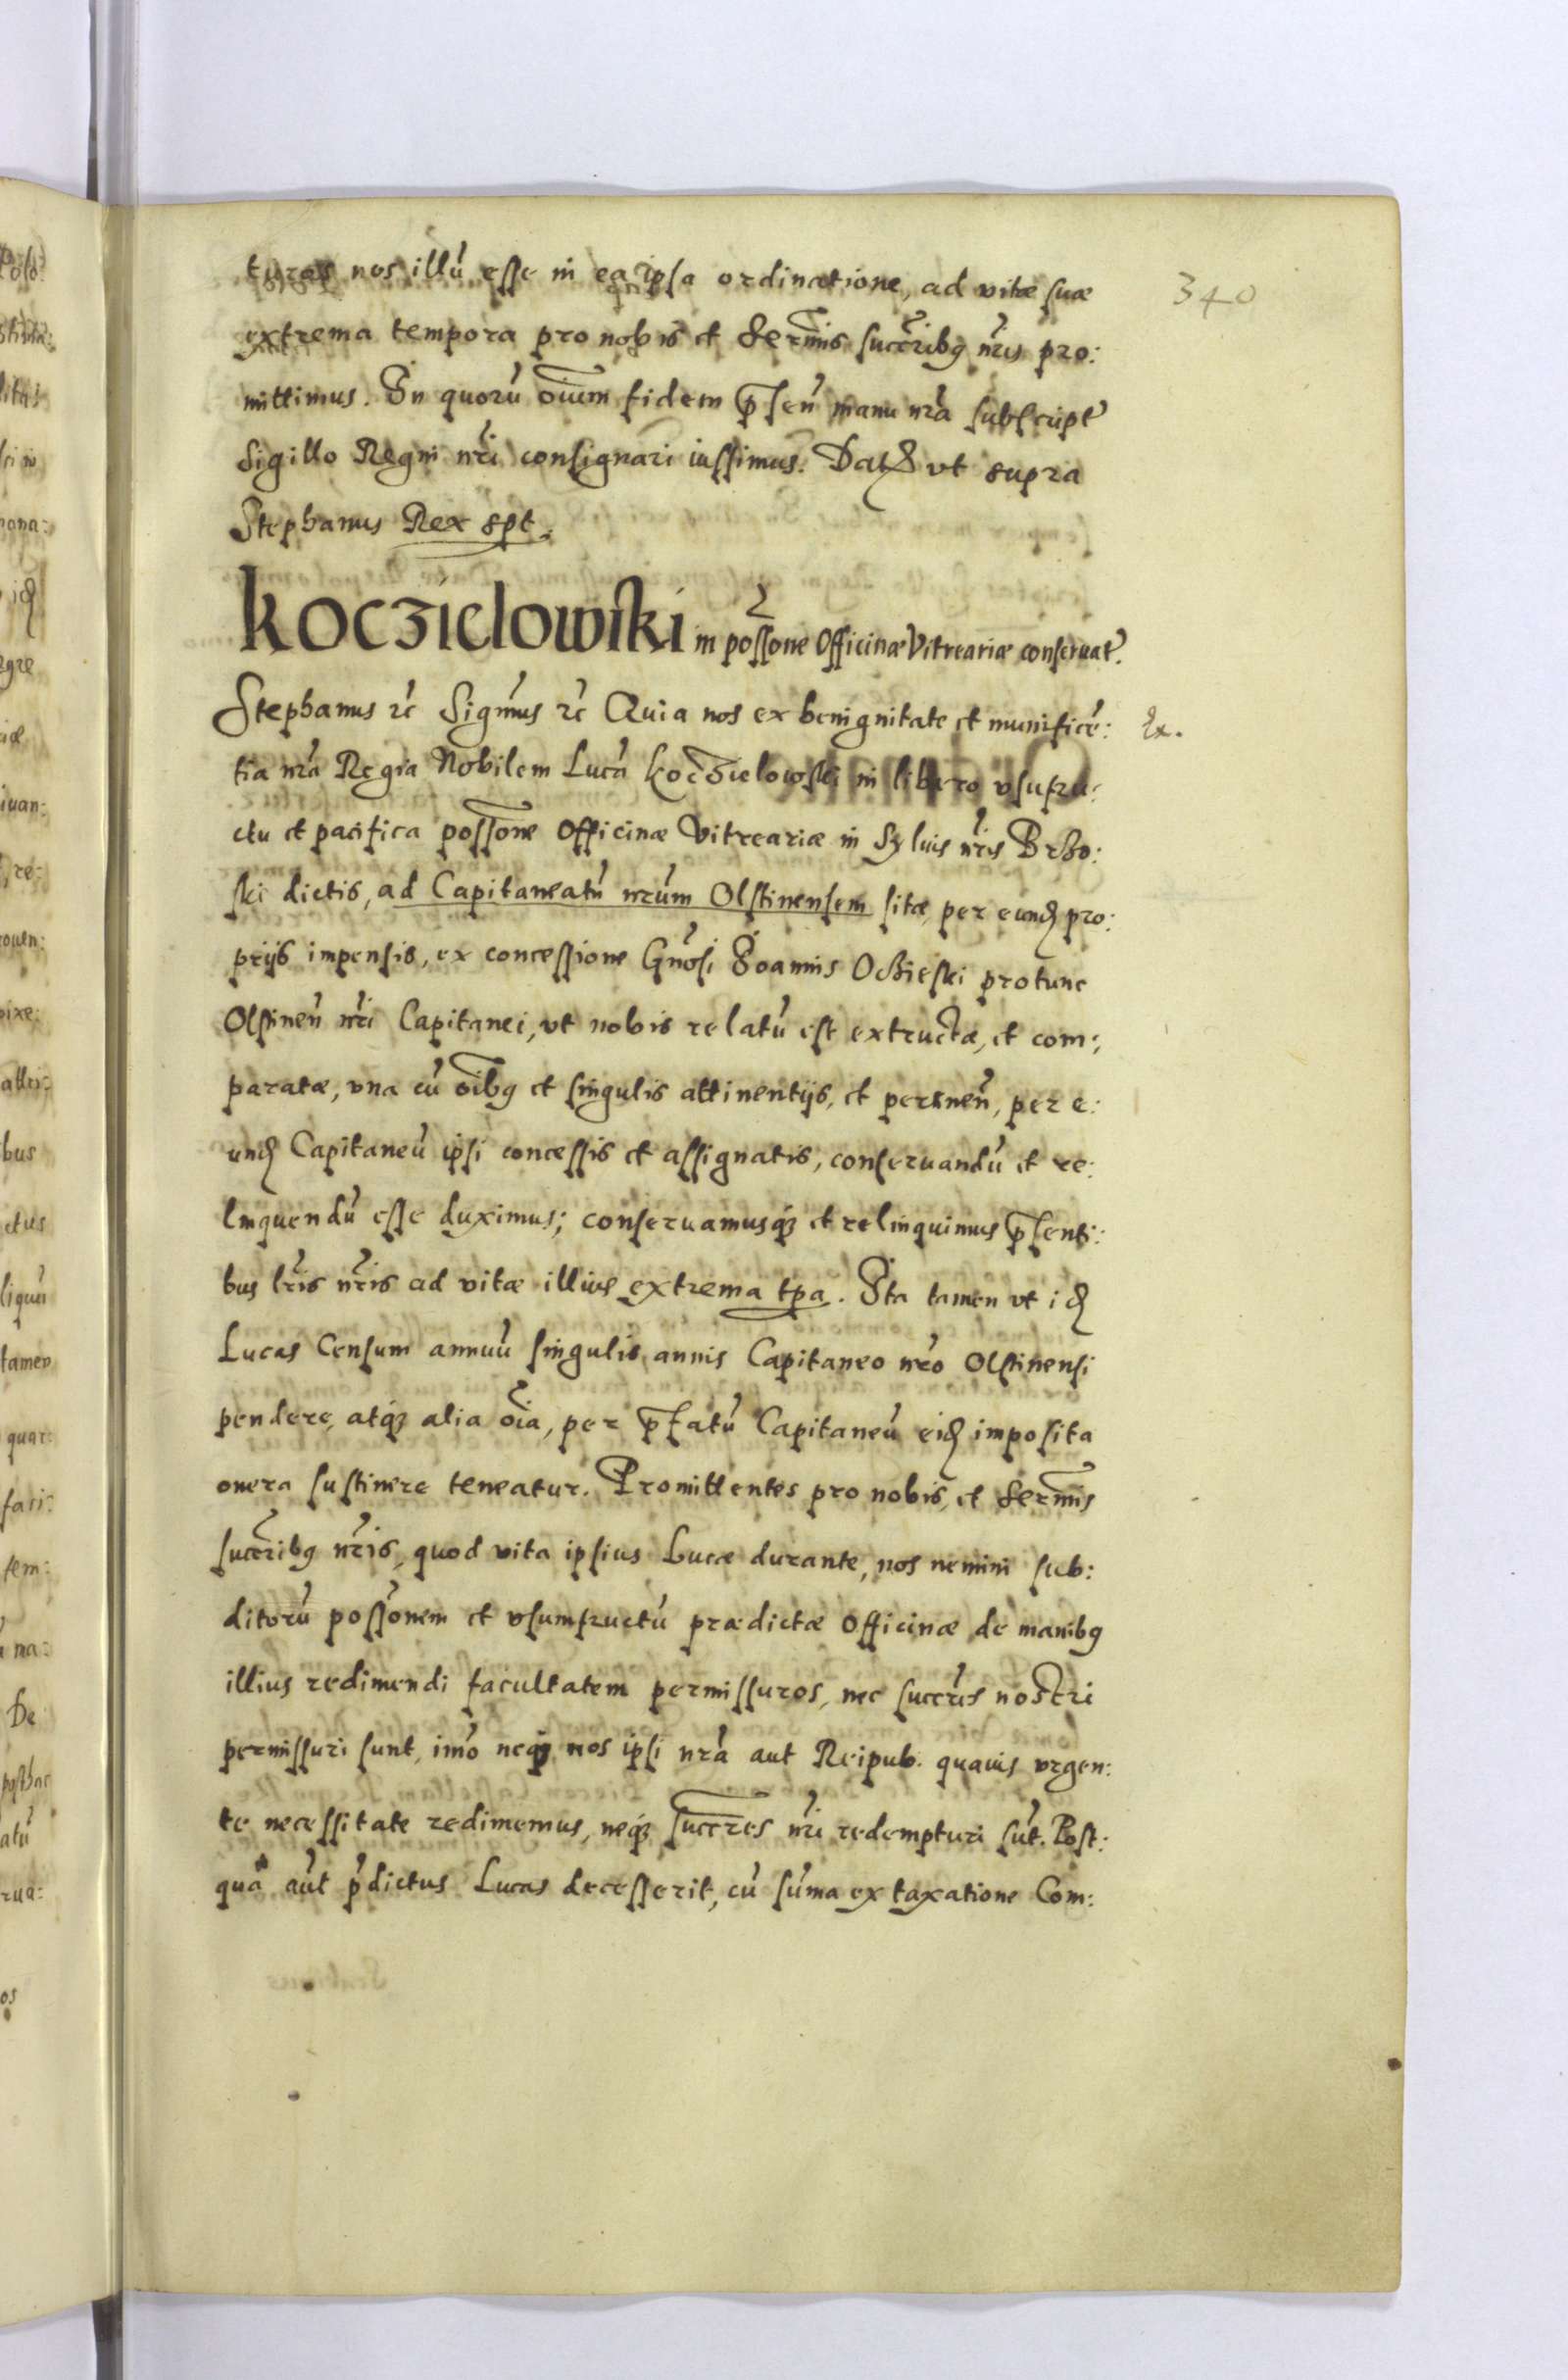 340
turas nos illū esse in ea ipsa ordinatione, ad vitæ suæ
extrema tempora pro nobis et Serm̄is succ̄ribꝫ nr̄is pro:
mittimus. In quorū oīum fidem p̄sen̄ manu nr̄a subscript̄
Sigillo Regni nr̄i consignari iussimus. Dat̄ vt supra
Stephanus Rex spt.
Koczielowski in poss̄one Officinæ Vitreariæ conseruat̄.
Stephanus ꝛc̄ Sigm̄us ꝛc̄ Quia nos ex benignitate et munificē:
tia nr̄a Regia Nobilem Lucā Koczielowski in libero vsufru:
ctu et pacifica poss̄one Officinæ Vitreariæ in Syluis nr̄is Brzo:
ski dictis, ad Capitaneatū nr̄um Olstinensem sitæ, per eund̄ pro:
prijs impensis, ex concessione Gn̄osi Joannis Oczieski protunc
Olstinen̄ nr̄i Capitanei, vt nobis relatū est extructæ, et com:
paratæ, vna cū oībꝫ et singulis attinentijs, et pertinen̄, per e:
und̄ Capitaneū ipsi concessis et assignatis, conseruandū et re:
linquendū esse duximus; conseruamusqꝫ et relinquimus p̄senti:
bus lr̄is nr̄is ad vitæ illius extrema tp̄a. Ita tamen vt id̄
Lucas Censum annuū singulis annis Capitaneo nr̄o Olstinensi
pendere, atqꝫ alia oīa, per p̄fatū Capitaneū eid̄ imposita
onera sustinere teneatur. Promittentes pro nobis, et Serm̄is
succ̄ribꝫ nr̄is, quod vita ipsius Lucæ durante, nos nemini sub:
ditorū poss̄onem et vsumfructū prædictæ Officinæ de manibꝫ
illius redimendi facultatem permissuros, nec succr̄es nostri
permissuri sunt, imo neqꝫ nos ipsi nr̄a aut Reipub. quauis vrgen:
te necessitate redimemus, neqꝫ succr̄es nr̄i redempturi sūt. Post:
quā aūt p̄dictus Lucas decesserit, cū sūma ex taxatione Com: